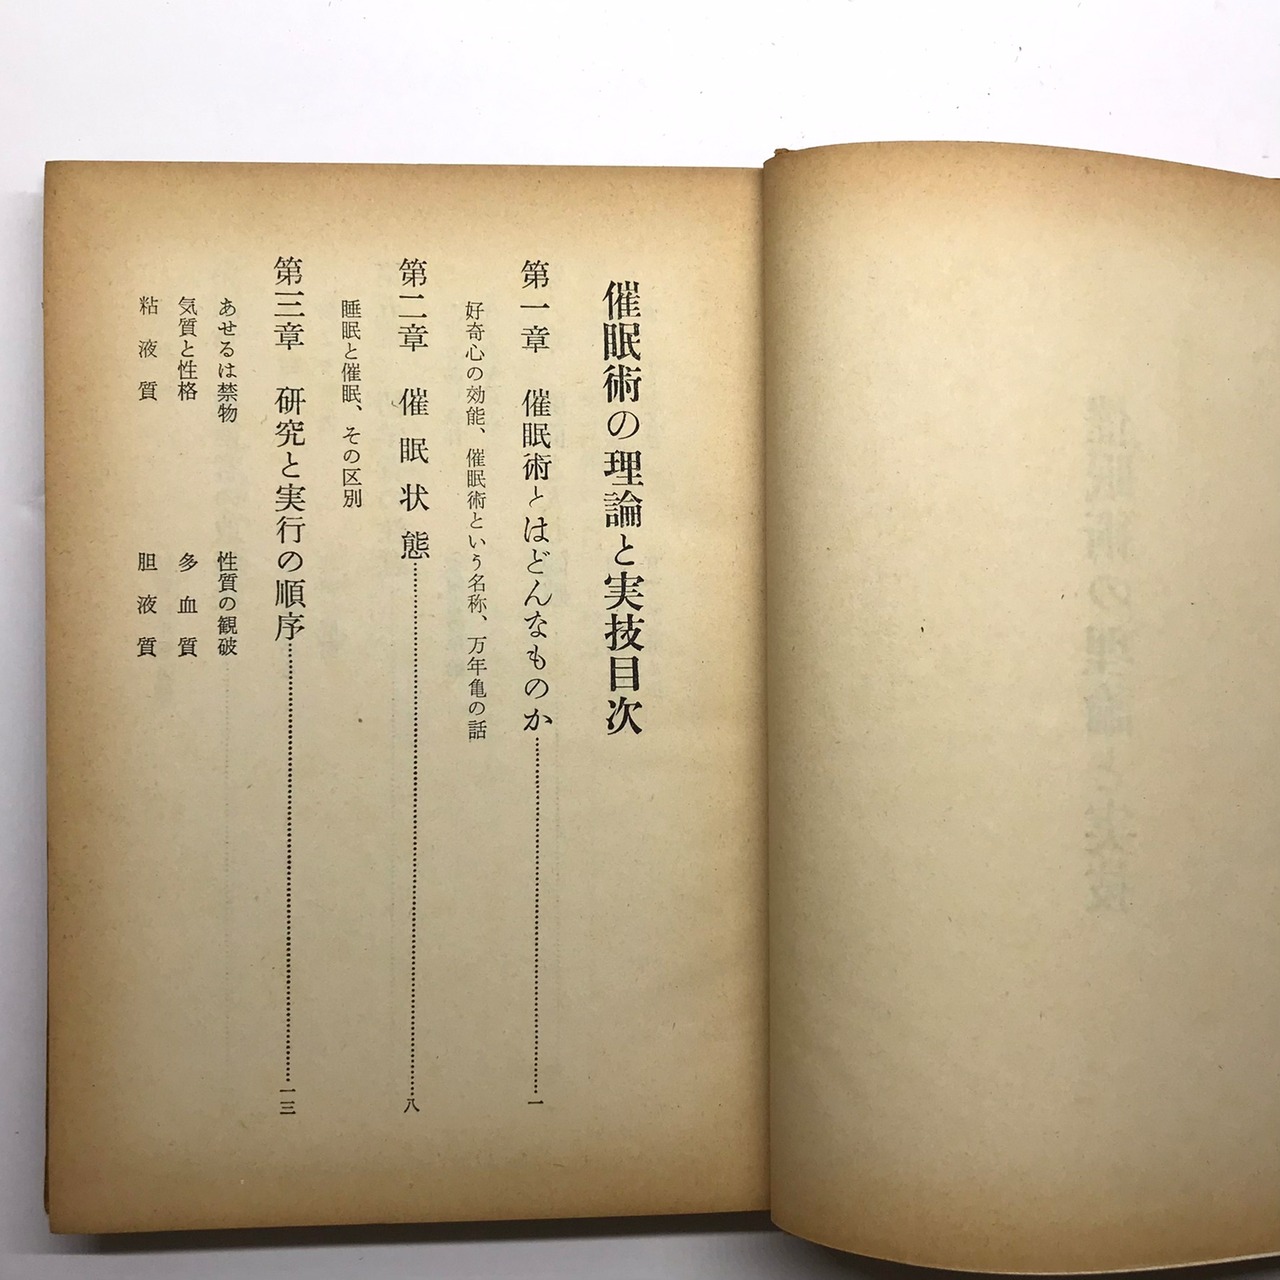 催眠術の理論と実技目次
第一章 催眠術とはどんなものか……一
好奇心の効能、催眠術という名称、万年亀の話
第二章 催眠状態……八
睡眠と催眠、その区別
第三章 研究と実行の順序……一三
あせるは禁物 性質の観破
気質と性格 多血質
粘液質 胆液質